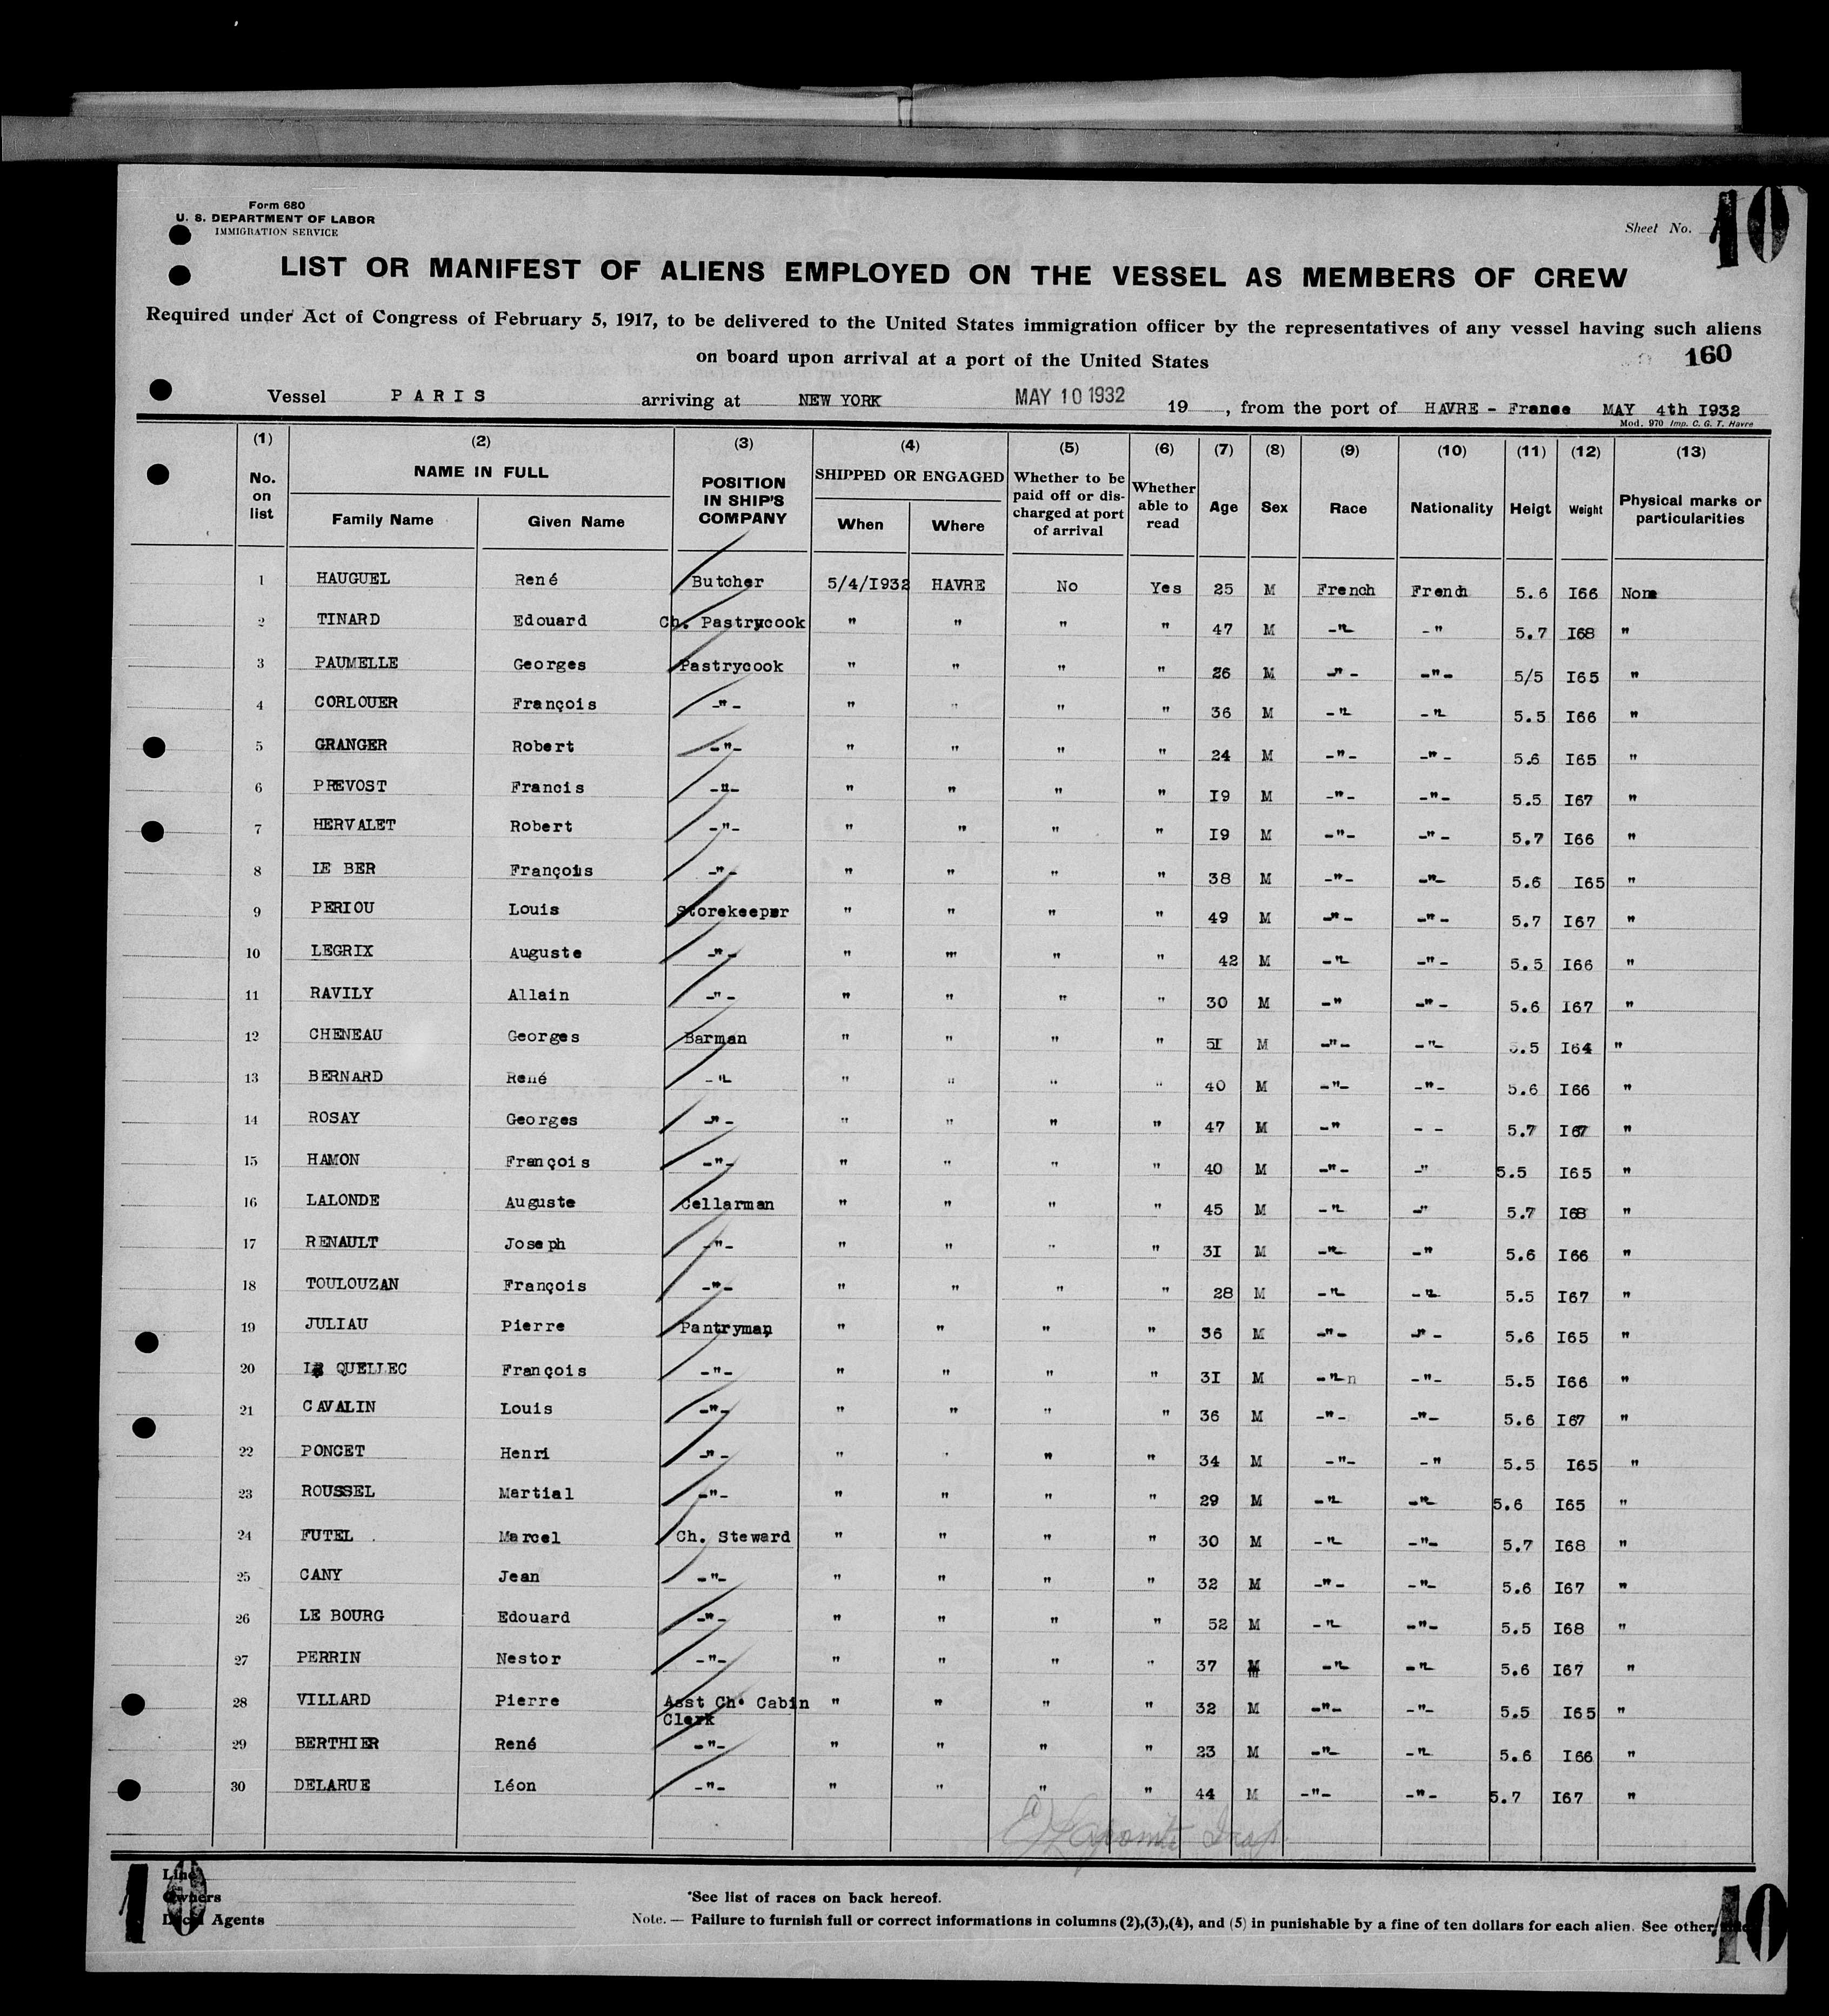 Form 680
U. S. DEPARTMENT OF LABOR
IMMIGRATION SERVICE
Sheet No. 10
LIST OR MANIFEST OF ALIENS EMPLOYED ON THE VESSEL AS MEMBERS OF CREW
Required under Act of Congress of February 5, 1917, to be delivered to the United States immigration officer by the representatives of any vessel having such aliens
on board upon arrival at a port of the United States
160
Vessel PARIS arriving at NEW YORK MAY 10 1932 19 , from the port of HAVRE - France MAY 4th I932
Mod. 970 Imp. C. G. T. Havre
(1) (2) (3) (4) (5) (6) (7) (8) (9) (10) (11) (12) (13)
No. on list NAME IN FULL Family Name Given Name POSITION IN SHIP'S COMPANY SHIPPED OR ENGAGED When Where Whether to be paid off or discharged at port of arrival Whether able to read Age Sex Race Nationality Heigt Weight Physical marks or particularities
1 HAUGUEL René Butcher 5/4/I932 HAVRE No Yes 25 M French French 5.6 I66 None
2 TINARD Edouard Ch. Pastrycook " " " " 47 M -"- -" 5.7 I68 "
3 PAUMELLE Georges Pastrycook " " " " 26 M -"- -"- 5/5 I65 "
4 CORLOUER François -"- " " " " 36 M -"- -"- 5.5 I66 "
5 GRANGER Robert -"- " " " " 24 M -"- -"- 5.6 I65 "
6 PREVOST Francis -"- " " " " I9 M -"- -"- 5.5 I67 "
7 HERVALET Robert -"- " " " " I9 M -"- -"- 5.7 I66 "
8 LE BER François -"- " " " " 38 M -"- -"- 5.6 I65 "
9 PERIOU Louis Storekeeper " " " " 49 M -"- -"- 5.7 I67 "
10 LEGRIX Auguste -"- " " " " 42 M -"- -"- 5.5 I66 "
11 RAVILY Allain -"- " " " " 30 M -" -"- 5.6 I67 "
12 CHENEAU Georges Barman " " " " 5I M -"- -"- 5.5 I64 "
13 BERNARD René -"- " " " " 40 M -"- -"- 5.6 I66 "
14 ROSAY Georges -"- " " " " 47 M -" - - 5.7 I67 "
15 HAMON François -"- " " " " 40 M -"- -" 5.5 I65 "
16 LALONDE Auguste Cellarman " " " " 45 M -"- -" 5.7 I68 "
17 RENAULT Joseph -"- " " " " 3I M -"- -" 5.6 I66 "
18 TOULOUZAN François -"- " " " " 28 M -"- -"- 5.5 I67 "
19 JULIAU Pierre Pantryman " " " " 36 M -"- -"- 5.6 I65 "
20 LE QUELLEC François -"- " " " " 3I M -"- -"- 5.5 I66 "
21 CAVALIN Louis -"- " " " " 36 M -"- -"- 5.6 I67 "
22 PONCET Henri -"- " " " " 34 M -"- -" 5.5 I65 "
23 ROUSSEL Martial -"- " " " " 29 M -"- -"- 5.6 I65 "
24 FUTEL Marcel Ch. Steward " " " " 30 M -"- -"- 5.7 I68 "
25 CANY Jean -"- " " " " 32 M -"- -"- 5.6 I67 "
26 LE BOURG Edouard -"- " " " " 52 M -"- -"- 5.5 I68 "
27 PERRIN Nestor -"- " " " " 37 M -"- -"- 5.6 I67 "
28 VILLARD Pierre Asst Ch. Cabin Clerk " " " " 32 M -"- -"- 5.5 I65 "
29 BERTHIER René -"- " " " " 23 M -"- -"- 5.6 I66 "
30 DELARUE Léon -"- " " " " 44 M -"- -"- 5.7 I67 "
Line
Owners
Local Agents
10
*See list of races on back hereof.
Note. — Failure to furnish full or correct informations in columns (2),(3),(4), and (5) in punishable by a fine of ten dollars for each alien. See other
10